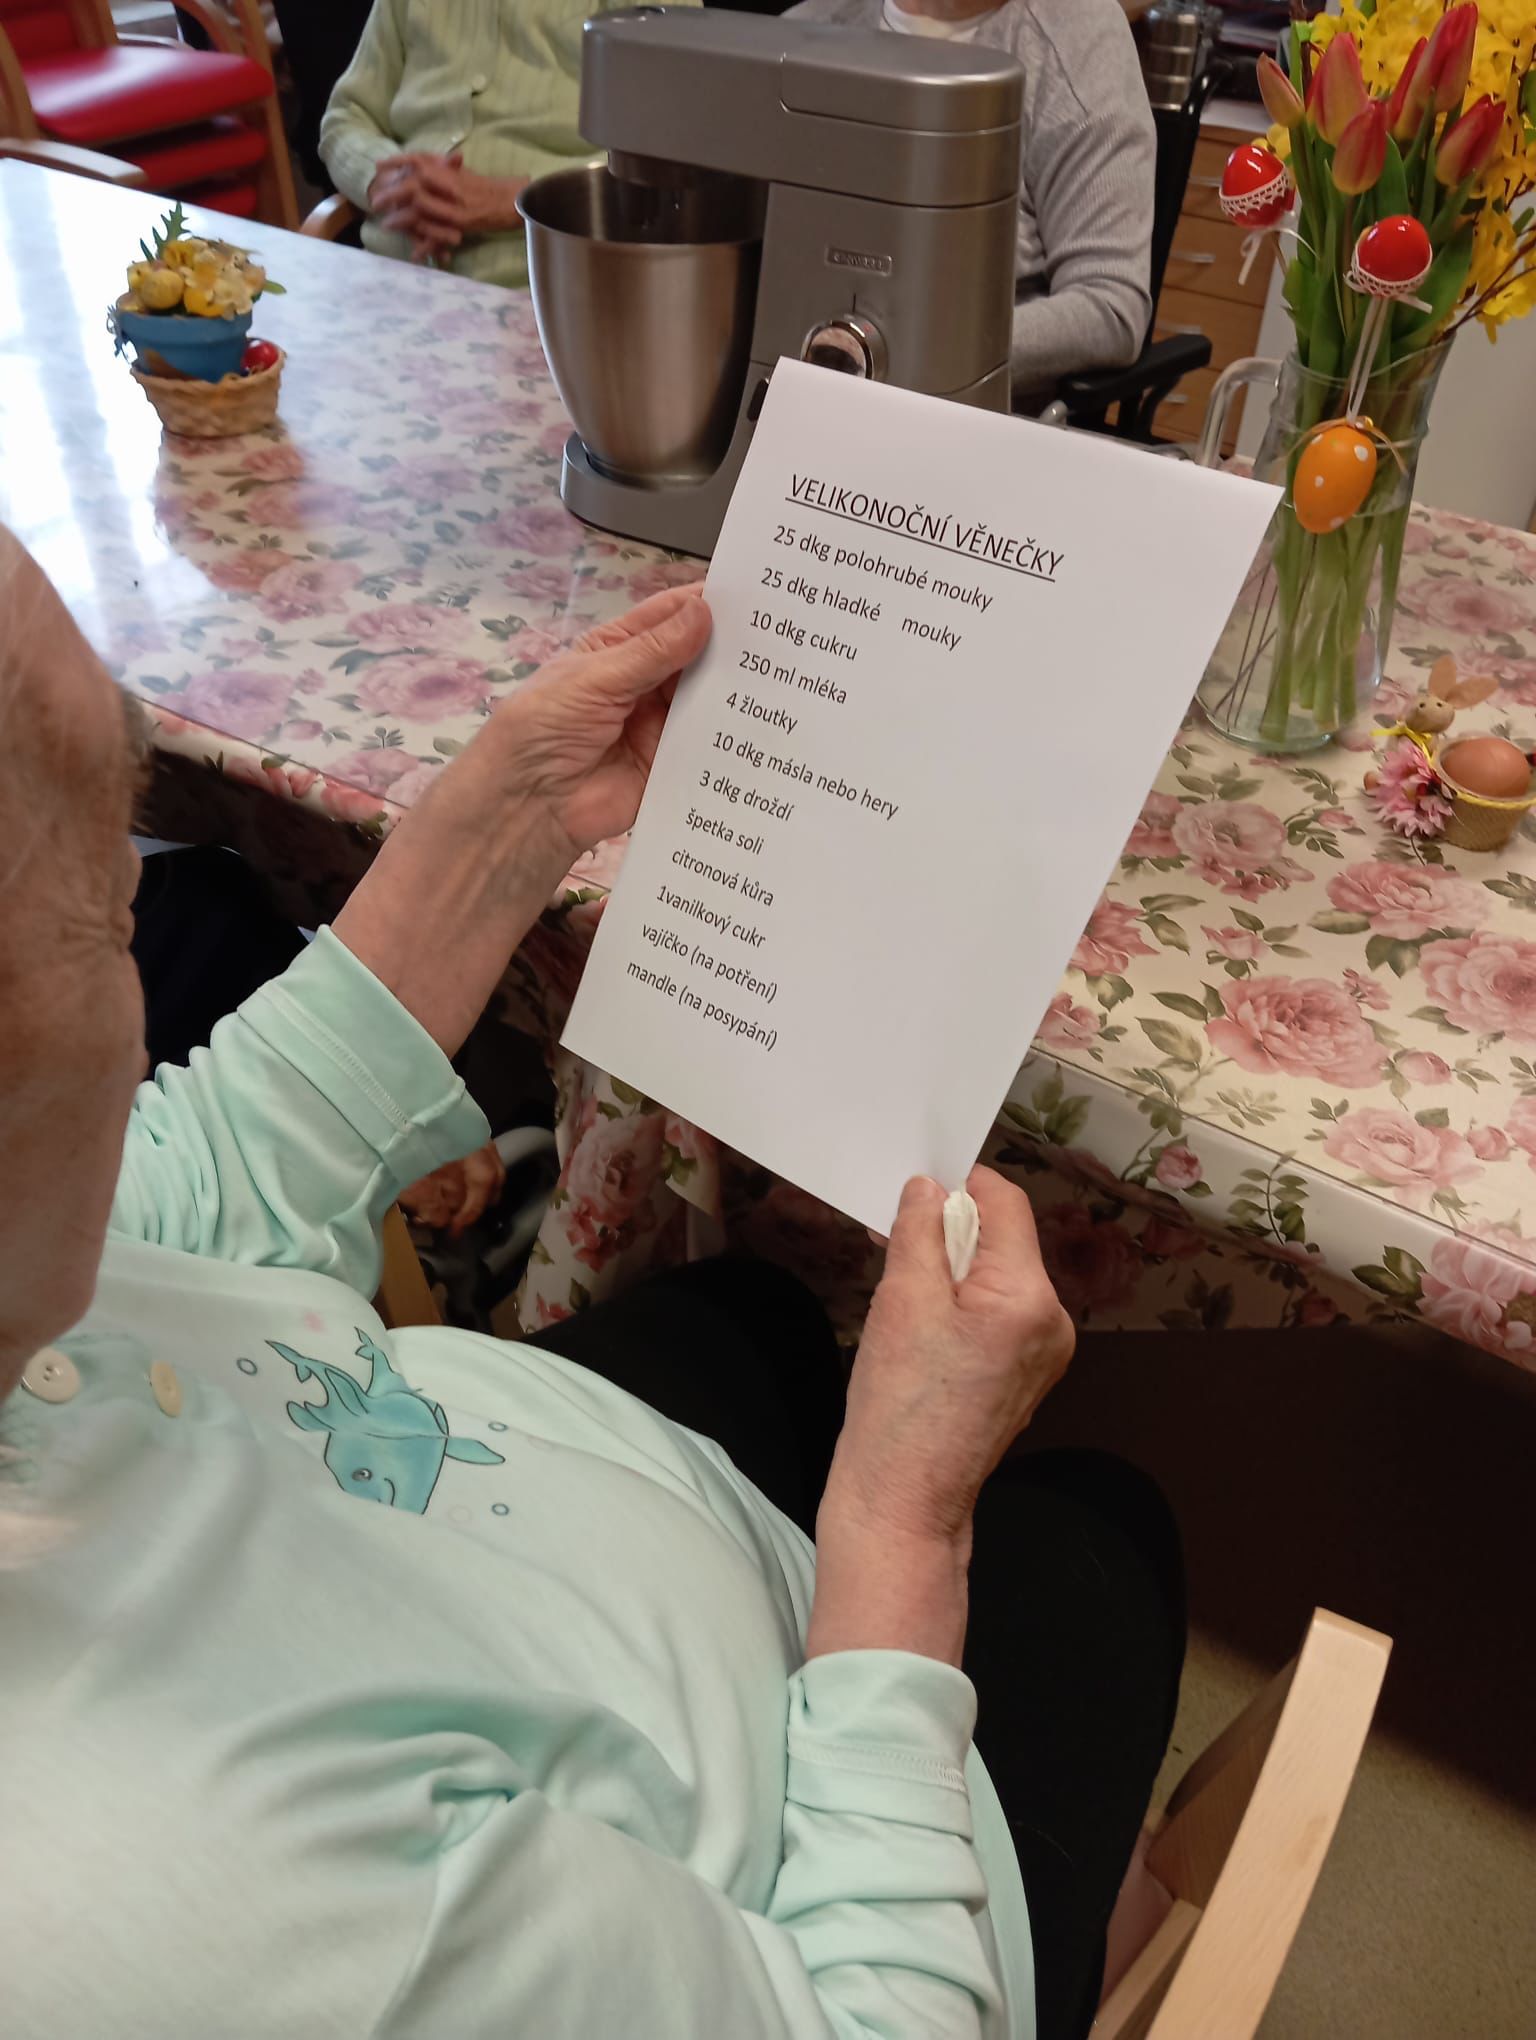 KENWOOD
VELIKONOČNÍ VĚNEČKY
25 dkg polohrubé mouky
25 dkg hladké mouky
10 dkg cukru
250 ml mléka
4 žloutky
10 dkg másla nebo hery
3 dkg droždí
špetka soli
citronová kůra
1vanilkový cukr
vajíčko (na potření)
mandle (na posypání)